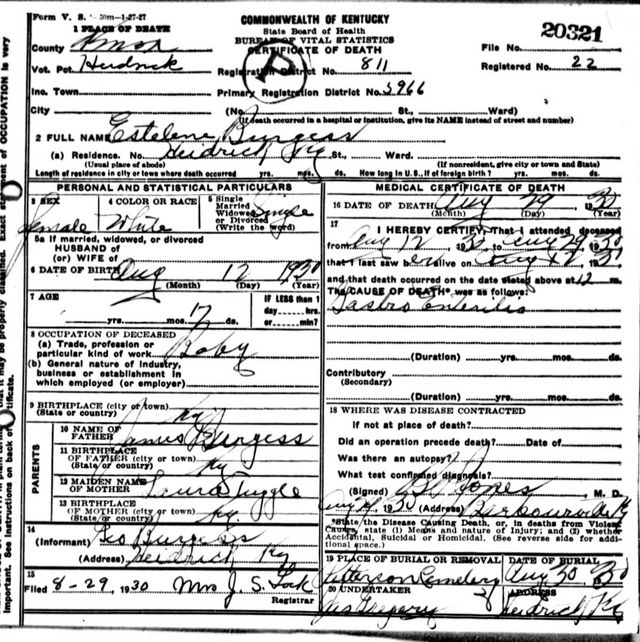 Form V. S. 50m-1-27-27
COMMONWEALTH OF KENTUCKY
State Board of Health
BUREAU OF VITAL STATISTICS
CERTIFICATE OF DEATH
1 PLACE OF DEATH
County Knox
Vot. Pct. Heidrick
Inc. Town
City
Registration District No. 811
Primary Registration District No. 5966
File No. 20321
Registered No. 22
(No. St., Ward)
(If death occurred in a hospital or institution, give its NAME instead of street and number)
2 FULL NAME Estelene Burgess
(a) Residence. No. Heidrick Ky St., Ward.
(Usual place of abode) (If nonresident, give city or town and State)
Length of residence in city or town where death occurred yrs. mos. ds. How long in U.S., if of foreign birth? yrs. mos. ds.
PERSONAL AND STATISTICAL PARTICULARS
3 SEX
female
4 COLOR OR RACE
White
5 Single
Married
Widowed
or Divorced
(Write the word)
Single
5a If married, widowed, or divorced
HUSBAND of
(or) WIFE of
6 DATE OF BIRTH Aug 12 1930
(Month) (Day) (Year)
7 AGE
yrs. mos. 17 ds.
IF LESS than 1
day hrs.
or min?
8 OCCUPATION OF DECEASED
(a) Trade, profession or
particular kind of work Baby
(b) General nature of industry,
business or establishment in
which employed (or employer)
9 BIRTHPLACE (city or town)
(State or country) Ky
PARENTS
10 NAME OF
FATHER James Burgess
11 BIRTHPLACE
OF FATHER (city or town)
(State or country) Ky
12 MAIDEN NAME
OF MOTHER Laura Tuggle
13 BIRTHPLACE
OF MOTHER (city or town)
(State or country) Ky
14
(Informant) Geo Burgess
(Address) Heidrick Ky
15
Filed 8-29, 1930 Mrs J. S.
Registrar
MEDICAL CERTIFICATE OF DEATH
16 DATE OF DEATH Aug 29 1930
(Month) (Day) (Year)
17
I HEREBY CERTIFY, That I attended deceased
from Aug 12 1930 to Aug 29 1930
that I last saw er alive on Aug
and that death occurred on the date stated above at 12 m.
The CAUSE OF DEATH* was as follows:
Gastro Enteritis
(Duration) yrs. mos. ds.
Contributory
(Secondary)
(Duration) yrs. mos. ds.
18 WHERE WAS DISEASE CONTRACTED
If not at place of death?
Did an operation precede death? Date of
Was there an autopsy?
What test confirmed diagnosis?
(Signed) Jones M. D.
1930 (Address) Barbourville Ky
*State the Disease Causing Death, or, in deaths from Violent
Causes, state (1) Means and nature of Injury; and (2) whether
Accidental, Suicidal or Homicidal. (See reverse side for addi-
tional space.)
19 PLACE OF BURIAL OR REMOVAL DATE OF BURIAL
Cemetery Aug 30 1930
20 UNDERTAKER ADDRESS
Gregory Heidrick Ky